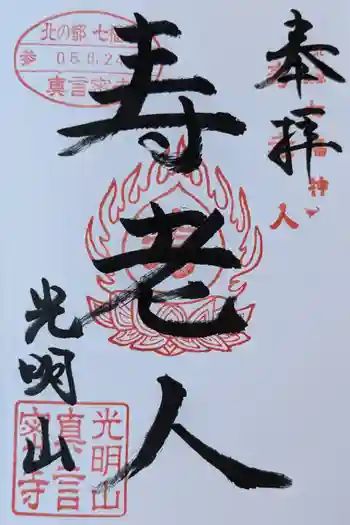 奉拝
寿老人
光明山
北の都 七福
参 05.8.24
真言密
神
人
光明山
真言
密寺